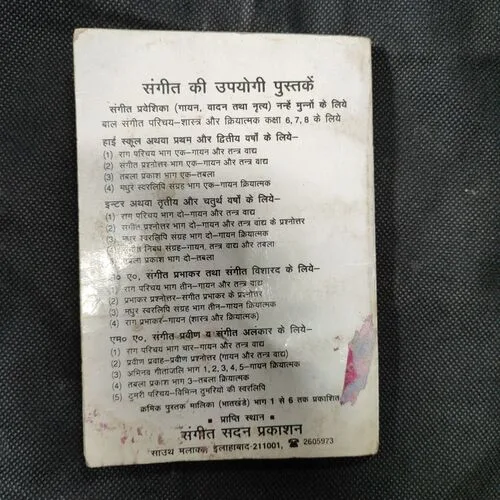 संगीत की उपयोगी पुस्तकें
संगीत प्रवेशिका (गायन, वादन तथा नृत्य) नन्हें मुन्नों के लिये
बाल संगीत परिचय–शास्त्र और क्रियात्मक कक्षा 6, 7, 8 के लिये
हाई स्कूल अथवा प्रथम और द्वितीय वर्षो के लिये–
(1) राग परिचय भाग एक–गायन और तन्त्र वाद्य
(2) संगीत प्रश्नोत्तर भाग एक–गायन और तन्त्र वाद्य
(3) तबला प्रकाश भाग एक–तबला
(4) मधुर स्वरलिपि संग्रह भाग एक–गायन क्रियात्मक
इन्टर अथवा तृतीय और चतुर्थ वर्षो के लिये–
(1) राग परिचय भाग दो–गायन और तन्त्र वाद्य
(2) संगीत प्रश्नोत्तर भाग दो–गायन और तन्त्र वाद्य के प्रश्नोत्तर
(3) मधुर स्वरलिपि संग्रह भाग दो–गायन क्रियात्मक
निबंध संग्रह–गायन, तन्त्र वाद्य और तबला
तबला प्रकाश भाग दो–तबला
ए०, संगीत प्रभाकर तथा संगीत विशारद के लिये–
(1) राग परिचय भाग तीन–गायन और तन्त्र वाद्य
(2) प्रभाकर प्रश्नोत्तर–संगीत प्रभाकर के प्रश्नोत्तर
(3) मधुर स्वरलिपि संग्रह भाग तीन–गायन क्रियात्मक
(4) राग प्रभाकर–गायन (शास्त्र और क्रियात्मक)
एम० ए०, संगीत प्रवीण व संगीत अलंकार के लिये–
(1) राग परिचय भाग चार–गायन और तन्त्र वाद्य
(2) प्रवीण प्रवाह–प्रवीण प्रश्नोत्तर (गायन और तन्त्र वाद्य)
(3) अभिनव गीतांजलि भाग 1, 2, 3, 4, 5–गायन क्रियात्मक
(4) तबला प्रकाश भाग 3–तबला क्रियात्मक
(5) ठुमरी परिचय–विभिन्न ठुमरियों की स्वरलिपि
क्रमिक पुस्तक मालिका (भातखंडे) भाग 1 से 6 तक प्रकाशित
• प्राप्ति स्थान •
संगीत सदन प्रकाशन
साउथ मलाका, इलाहाबाद-211001, ☎ 2605973